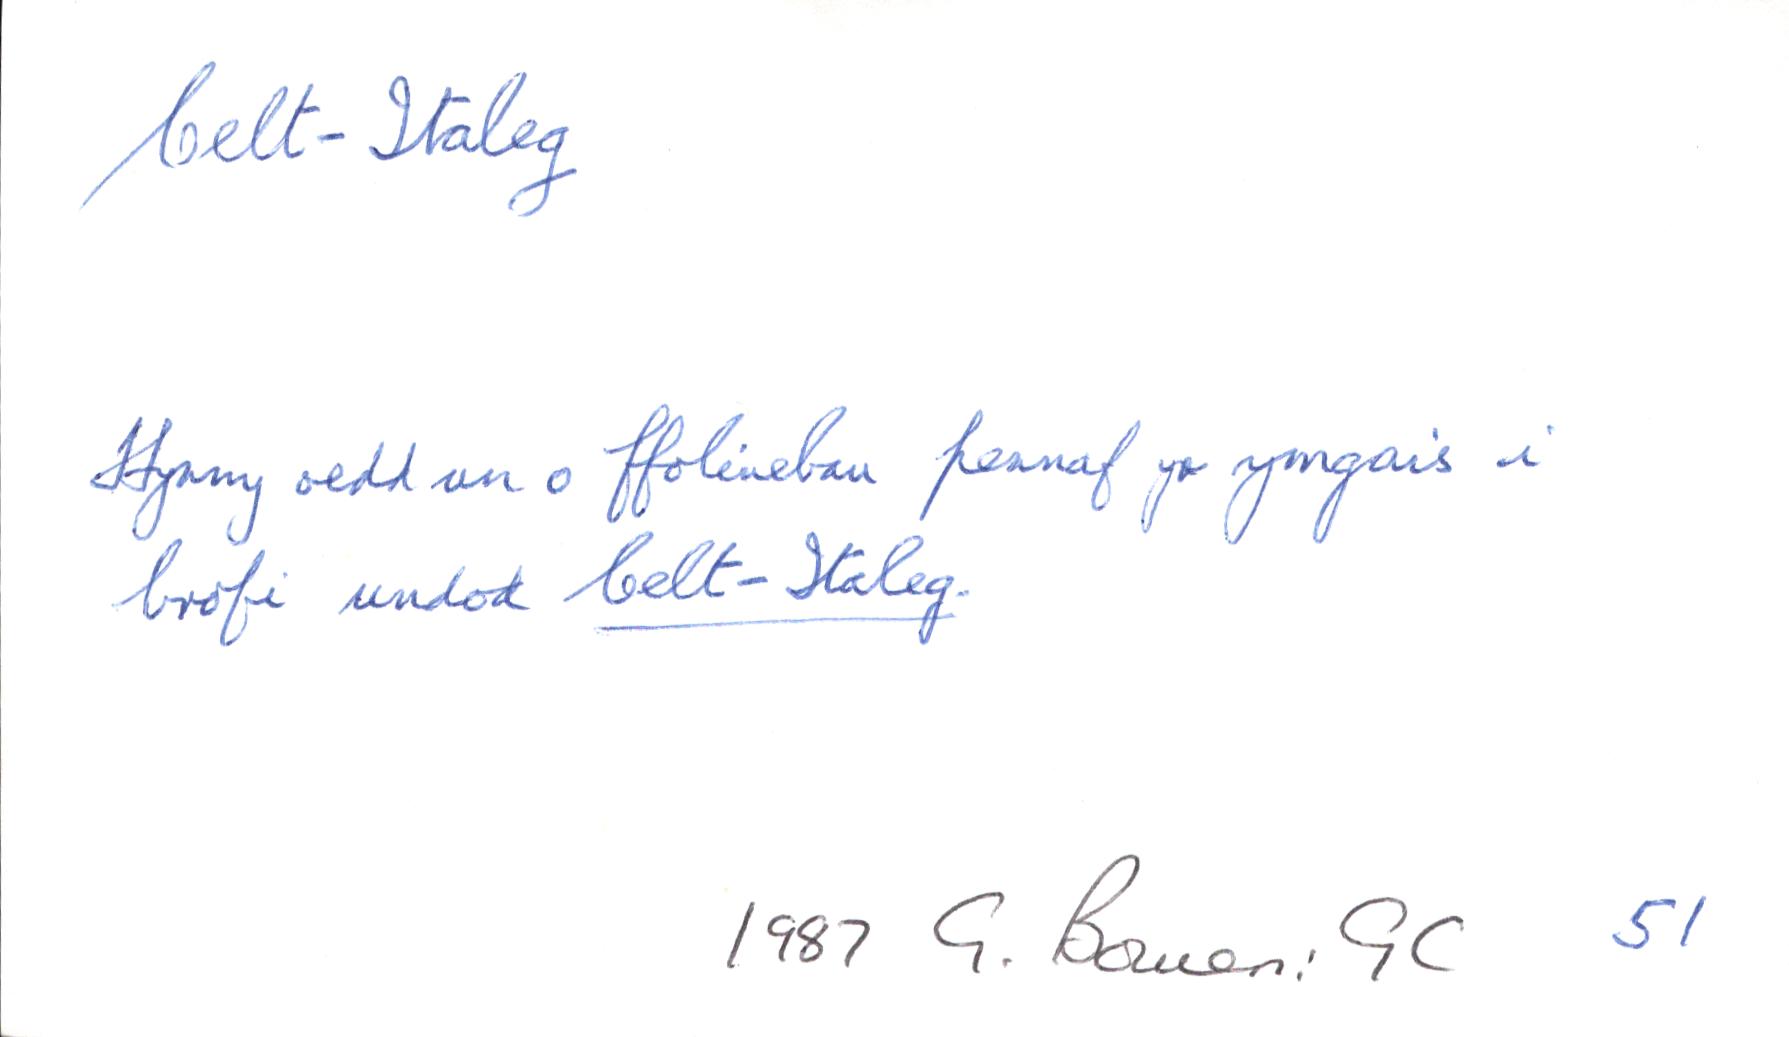 Celt-Italeg
Hynny oedd un o ffolinebau pennaf yr ymgais i
brofi undod Celt-Italeg.
1987 G. Bowen: GC 51